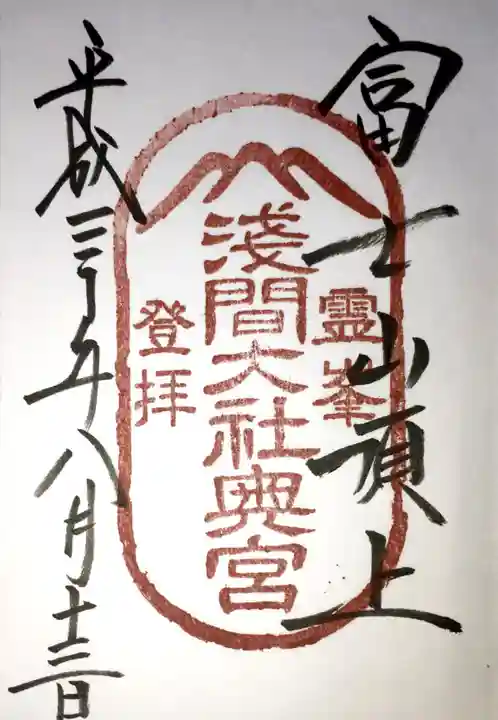 富士山頂上
霊峯
淺間大社奥宮
登拝
平成三十年八月十三日